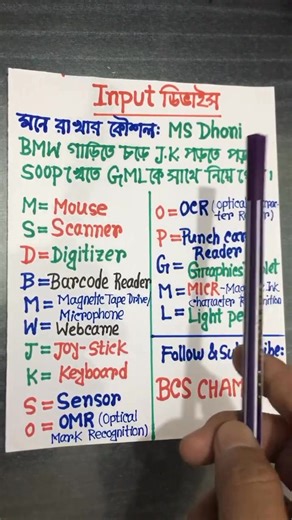 Input ডিভাইস
মনে রাখার কৌশল: MS Dhoni
BMW গাড়িতে চড়ে J.K পড়তে
SOOP খেতে GMLকে সাথে নিয়ে
M= Mouse
S= Scanner
D= Digitizer
B= Barcode Reader
M= Magnetic Tape Drive/
Microphone
W= Webcame
J= Joy-Stick
K= Keyboard
S= Sensor
O= OMR (Optical
Mark Recognition)
O= OCR (Optical
P= Punch
Reader
G= Graphics
M= MICR-
Character
L= Light
Follow &
BCS